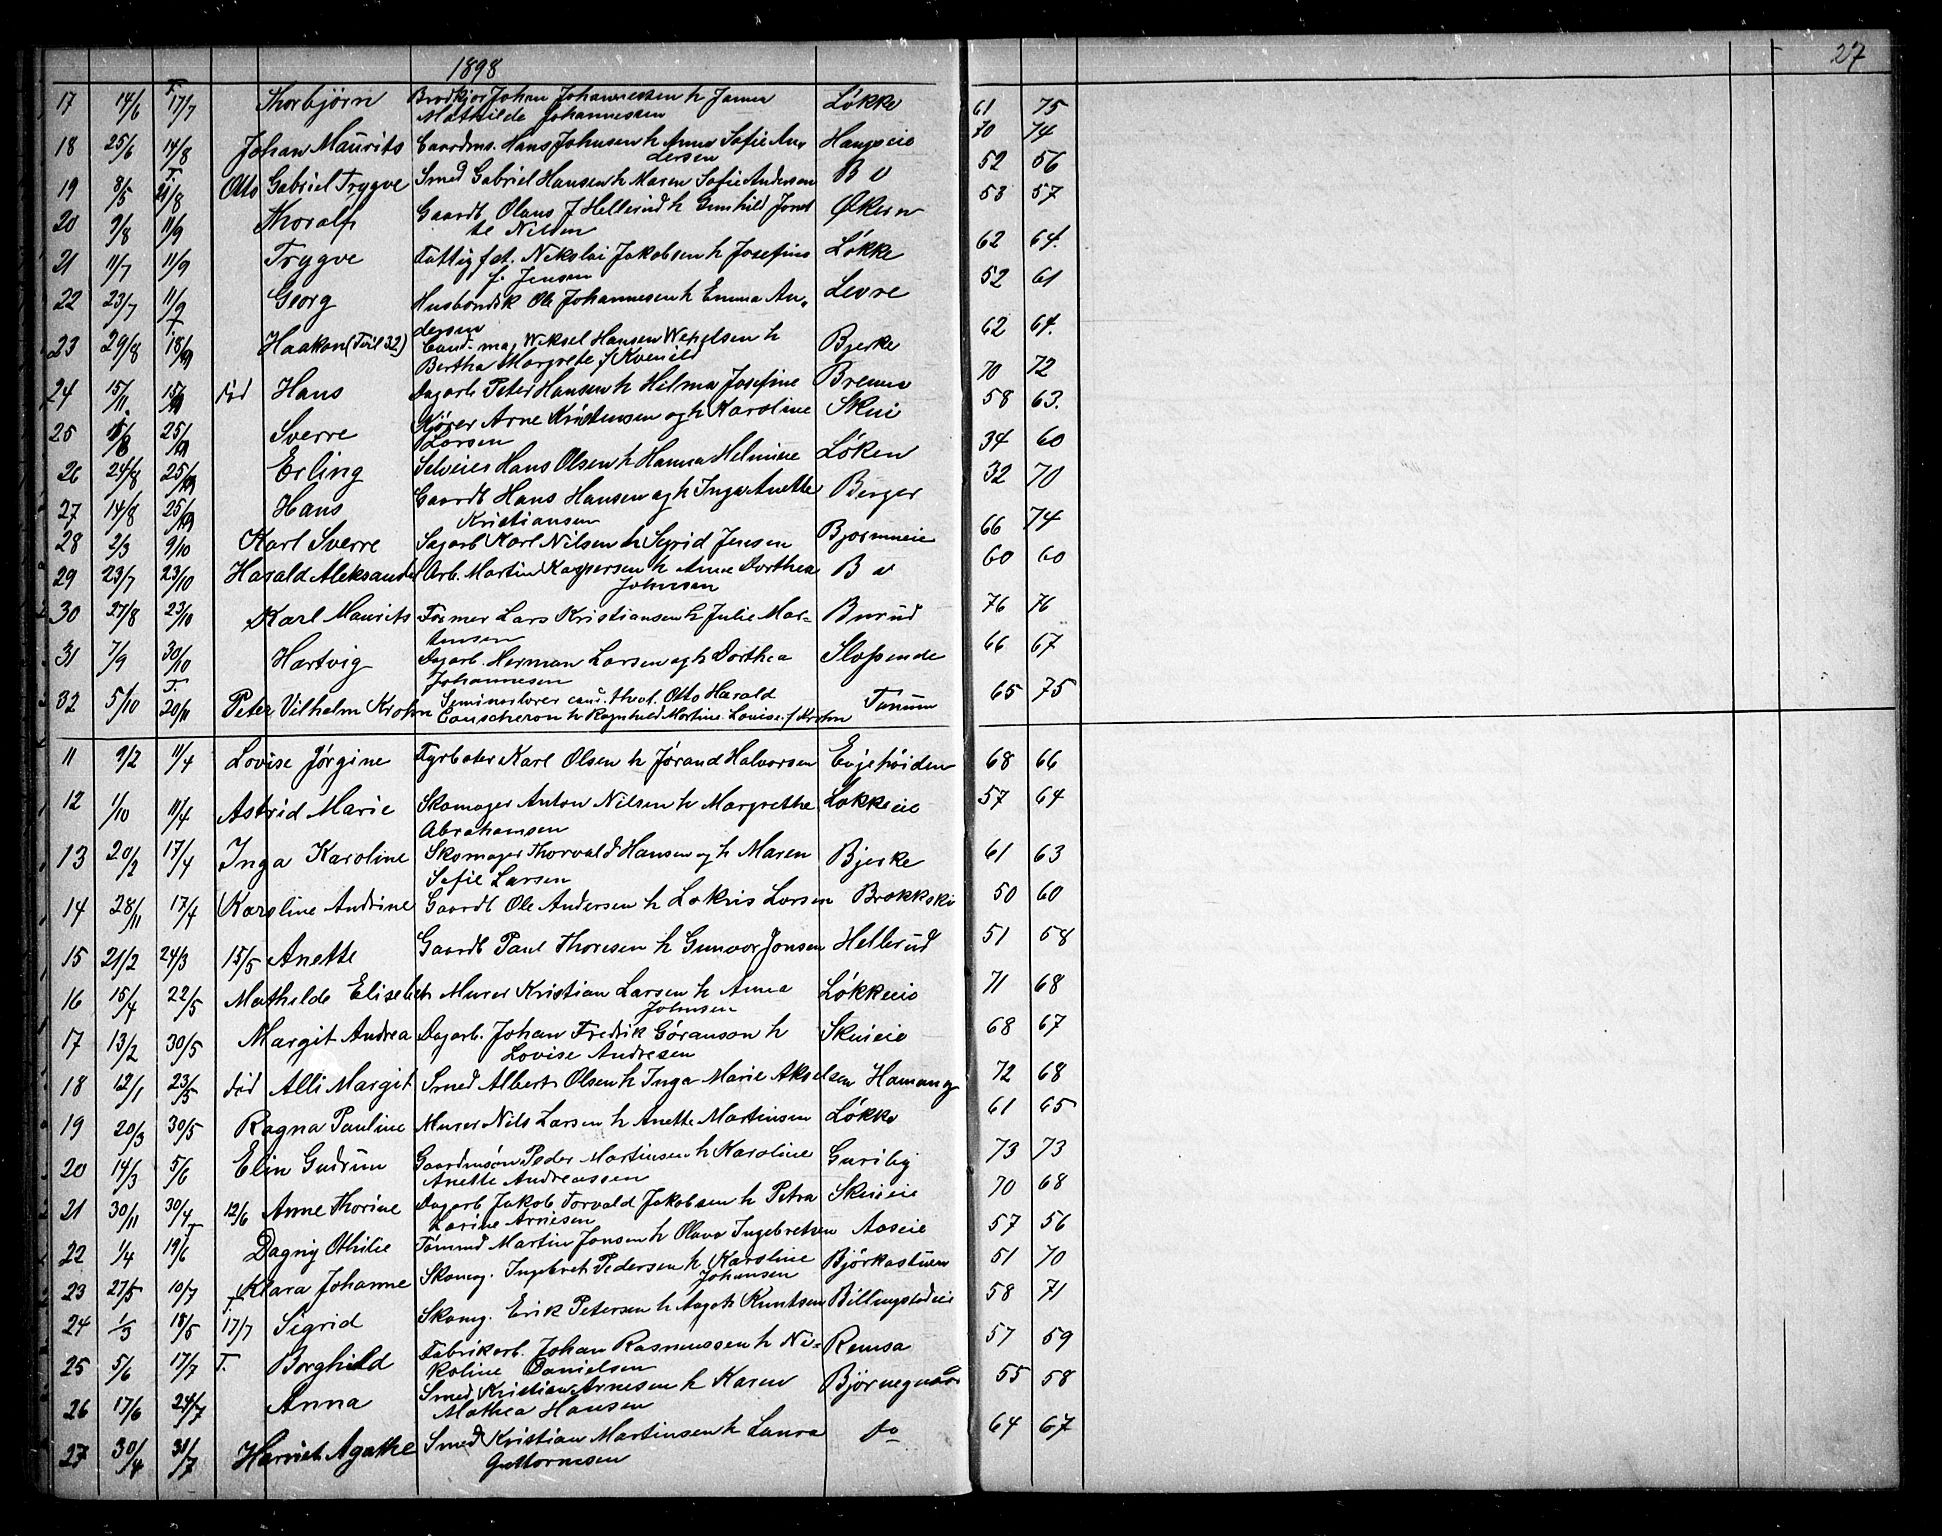 1898
27
17 14/6 T. 17/7 Thorbjörn Brödkjør Johan Johannessen h Janna Løkke 61 75
Mathilde Johannessen
18 25/6 14/8 Johan Maurits Gaardms. Hans Johnsen h Anna Sofie An- 70 74
dersen
19 8/5 T. 21/8 Otto Gabriel Trygve Smed Gabriel Hansen h Maren Sofie Andersen 52 56
20 9/8 11/9 Thoralf Gaardb. Olaus J Hellerud h Gunhild Økern 53 57
te Nilsen
21 11/7 11/9 Trygve Fattig f at. Nikolai Jakobsen h Josefine Løkke 62 64.
f. Jensen
22 23/7 11/9 Georg Ole Johannesen h Emma An- Levre 52 61
dersen
23 29/8 T. 18/9 Haakon (Tvil 32) Cand. mag Hansen h Bjerke 62 64.
Bertha Margrete f Kvenild
24 15/11 død Hans Dagarb Peter Hansen h Helma Josefine Brenna 70 72
25 25/9 Sverre Kjører Arne Kristensen og h Karoline Skui 58 63.
Larsen
26 24/8 25/9 Erling Selveier Hans Olsen h Hanna Helmine Løken 34 60
27 14/8 25/9 Hans Gaardb Hans Hansen og h Inga Anette Berger 32 70
Kristiansen
28 2/3 9/10 Karl Sverre Karl Nilsen h Sigrid Jensen 66 74
29 23/7 23/10 Harald Aleksander Arb. Martin Kaspersen h Anne Dorthea 60 60
Johnsen
30 27/8 23/10 Karl Maurits Lars Kristiansen h Julie Mar- Burud 76 76
tinsen
31 7/9 30/10 Hartvig Dagarb. Herman Larsen og h Dorthea Slependen 66 67
Johannesen
32 5/10 T. 20/11 Peter Vilhelm Krohn Seminarlærer cand. theol. Otto Harald Tanum 65 75
h Ragnhild Martine Louise f Krohn
11 9/2 11/4 Lovise Jørgine Fyrbøter Karl Olsen h Jørand Halvorsen Evjehøiden 68 66
12 1/10 11/4 Astrid Marie Skomager Anton Nilsen h Margrethe Løkkeeie 57 64
Abrahamsen
13 20/2 17/4 Inga Karoline Skomager Thorvald Hansen og h Maren Bjerke 61 63
Sofie Larsen
14 28/11 17/4 Karoline Andrine Gaardb Ole Andersen h Lokris Larsen 50 60
15 21/2 24/3 15/5 Anette Gaardb Paul Thoresen h Gunvor Jonsen Hellerud 51 58
16 15/4 22/5 Mathilde Elisebet Murer Kristian Larsen h Anna Løkkeeie 71 68
Johnsen
17 13/2 30/5 Margit Andrea Dagarb. Johan Fredrik Göranson h Skuieie 68 67
Lovise Andresen
18 12/1 23/5 død Alli Margit Smed Albert Olsen h Inga Marie Akselsen Hamang 72 68
19 20/3 30/5 Ragna Pauline Murer Nils Larsen h Anette Martinsen Løkke 61 65
20 14/3 5/6 Elin Gudrun Gaardmsøn Peder Martinsen h Karoline Guriby 73 73
Anette Andreassen
21 30/11 30/4 12/6 Anne Thorine Dagarb Jakob Torvald Jakobsen h Petra Skuieie 70 68
Larine Arnesen
22 1/4 T 19/6 Dagny Othilie Tømmd Martin Jonsen h Olava Ingebretsen Aaseie 57 56
23 27/5 10/7 Klara Johanne Skomg. Ingebret Pedersen h Karoline Bjørkastuen 51 70
Johansen
24 1/3 18/5 T. 17/7 Sigrid Skomg. Erik Petersen h Aagot Knutsen Billingstadeie 58 71
25 5/6 17/7 T. Borghild Fabrikarb. Johan Rasmussen h Ni- Remsa 57 59
koline Danielsen
26 17/6 24/7 Anna Smed Kristian Arnesen h Karen Bjørnegaard 55 58
Mathea Hansen
27 30/4 31/7 Harriet Agathe Smed Kristian Martinsen h Laura do 64 67
Guttormsen